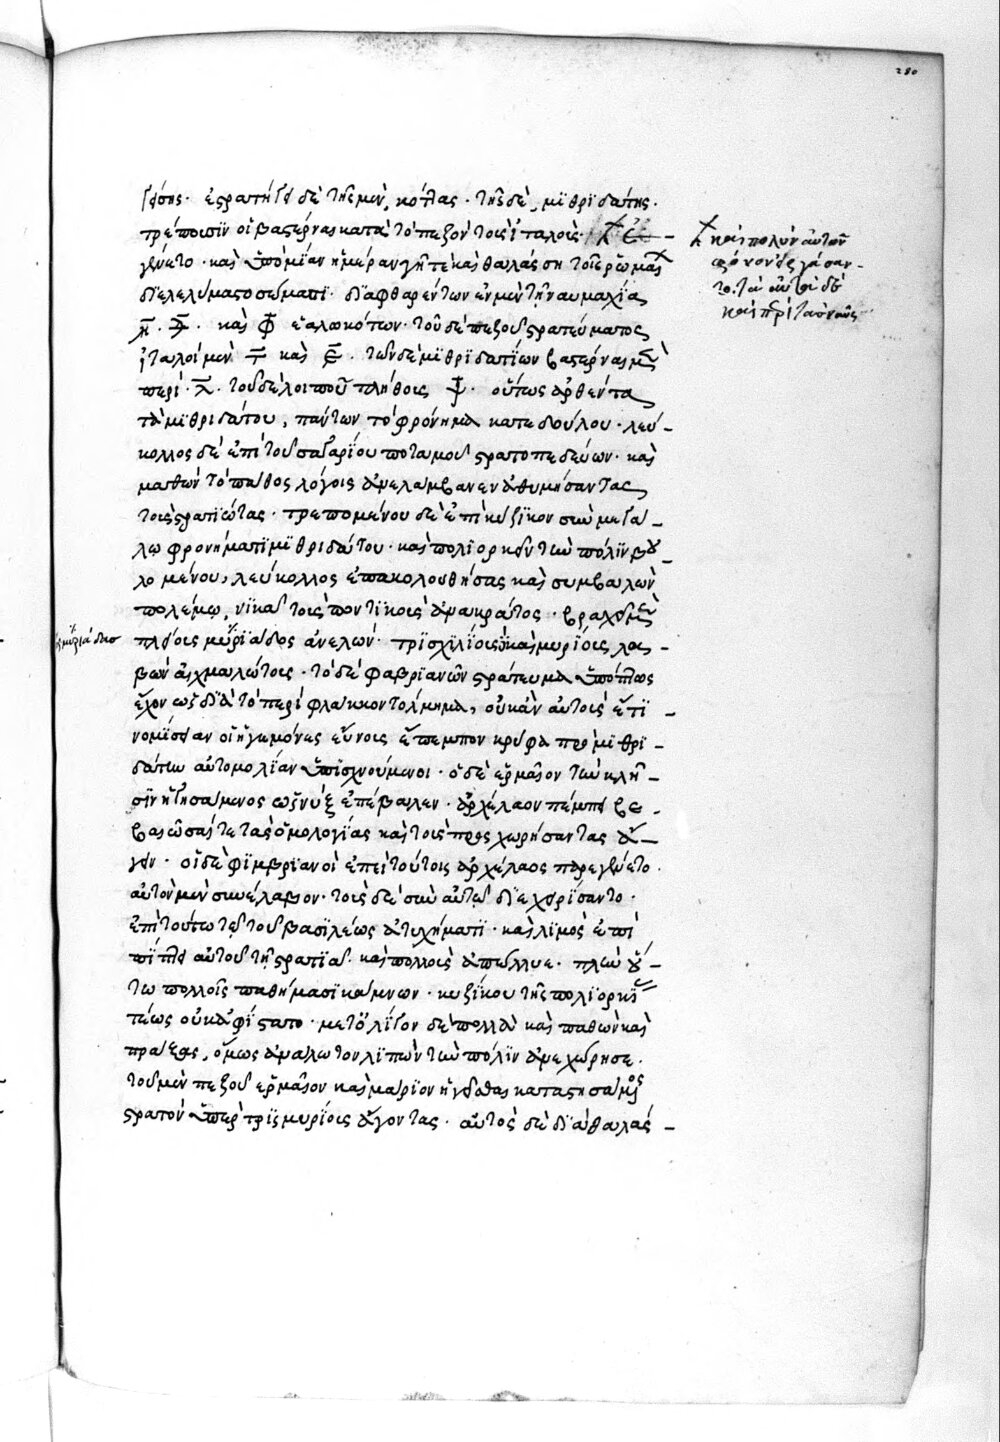 280
γείσης· ἐστρατήγει δὲ τῆς μὲν, κότας· τῆς δὲ, μιθριδάτης·
τρέπουσιν οἱ βαστέρναι κατὰ τὸ πεζὸν τοὺς ἰταλούς·
καὶ πολὺν αὐτῶν
φόνον εἰργάσαν-
το. τὰ αὐτὰ δὲ
καὶ περὶ τὰς ναῦς
γένετο· καὶ ὑπὸ μίαν ἡμέραν γῆ τε καὶ θαλάσση τοὺς ῥωμαί
διελελύμαστο σώματα· διαφθαρέντων ἐν μὲν τῆ ναυμαχία
η· καὶ ἑαλωκότων· τοῦ δὲ πεζοῦ στρατεύματος
ἰταλοὶ μὲν τ καὶ ε· τῶν δὲ μιθριδατίων βαστέρναι μὲν
περὶ λ· τοῦ δὲ λοιποῦ πλήθους ψ· οὕτως ἀρθέντα
τὰ μιθριδάτου, πάντων τὸ φρόνημα κατεδούλου· λεύ-
κολλος δὲ ἐπὶ τοῦ σαγαρίου ποταμοῦ στρατοπεδεύων· καὶ
μαθὼν τὸ πάθος λόγοις ἀνελάμβανεν ἀθυμήσαντας
τοὺς στρατιώτας· τρεπομένου δὲ ἐπὶ κύζικον σὺν μεγά-
λω φρονήματι μιθριδάτου· καὶ πολιορκεῖν τὴν πόλιν βου-
λομένου, λεύκολλος ἐπακολουθήσας καὶ συμβαλὼν
πολέμω, νικᾶ τοὺς ποντικοὺς ἀνακράτος· βραχὺ μὲν
πλείους μυριάδος ἀνελών· τρισχιλίους καὶ μυρίους λα-
βὼν αἰχμαλώτους· τὸ δὲ φαβριανῶν στράτευμα ὑπόπτως
ἔχον ὡς διὰ τὸ περὶ φλάκκον τόλμημα, οὐκ ἂν αὐτοῖς ἔτι
νομίσειαν οἱ ἡγεμόνες εὔνοις ἔπεμπον κρύφα πρὸς μιθρι-
δάτην αὐτομολίαν ὑπισχνούμενοι· ὁ δὲ ἕρμαιον τὴν κλῆ-
σιν ἡγησάμενος ὡς νὺξ ἐπέβαλεν· ἀρχέλαον πέμπει βε-
βαιώσαί τε τὰς ὁμολογίας καὶ τοὺς προσχωρήσαντας ἄ-
γειν· οἱ δὲ φιμβριανοὶ ἐπεὶ τούτοις ἀρχέλαος παρεγένετο·
αὐτὸν μὲν συνέλαβον· τοὺς δὲ σὺν αὐτῶ διεχειρίσαντο·
ἐπὶ τούτω τῶ τοῦ βασιλέως ἀτυχήματι· καὶ λιμὸς ἐπι
πίπτει αὐτοῦ τῆ στρατιᾶ· καὶ πολλοὺς ἀπώλλυε· πλὴν οὕ-
τω πολλοῖς παθήμασι κάμνων· κυζίκου τῆς πολιορκί
τέως οὐκ ἀφίστατο· μετολίγον δὲ πολλὰ καὶ παθὼν καὶ
πράξας, ὅμως ἀνάλωτον λιπὼν τὴν πόλιν ἀνεχώρησε·
τοῦ μὲν πεζοῦ ἑρμαῖον καὶ μάριον ἡγεῖσθαι καταστησάμενος
στρατὸν ὑπὲρ τρισμυρίους ἄγοντας· αὐτὸς δὲ διὰ θαλάσ-